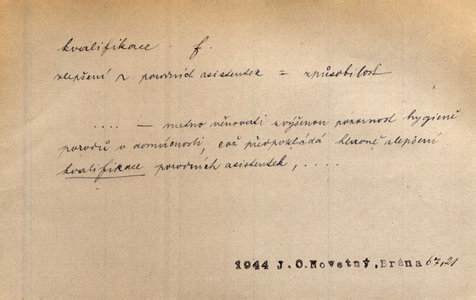 kvalifikace . f.
zlepšení ~ porodních asistentek = způsobilost
.... — nutno věnovati zvýšenou pozornost hygieně
porodů v domácnosti, což předpokládá hlavně zlepšení
kvalifikace porodních asistentek, ....
1944 J.O.Novotný, Brána 67,21